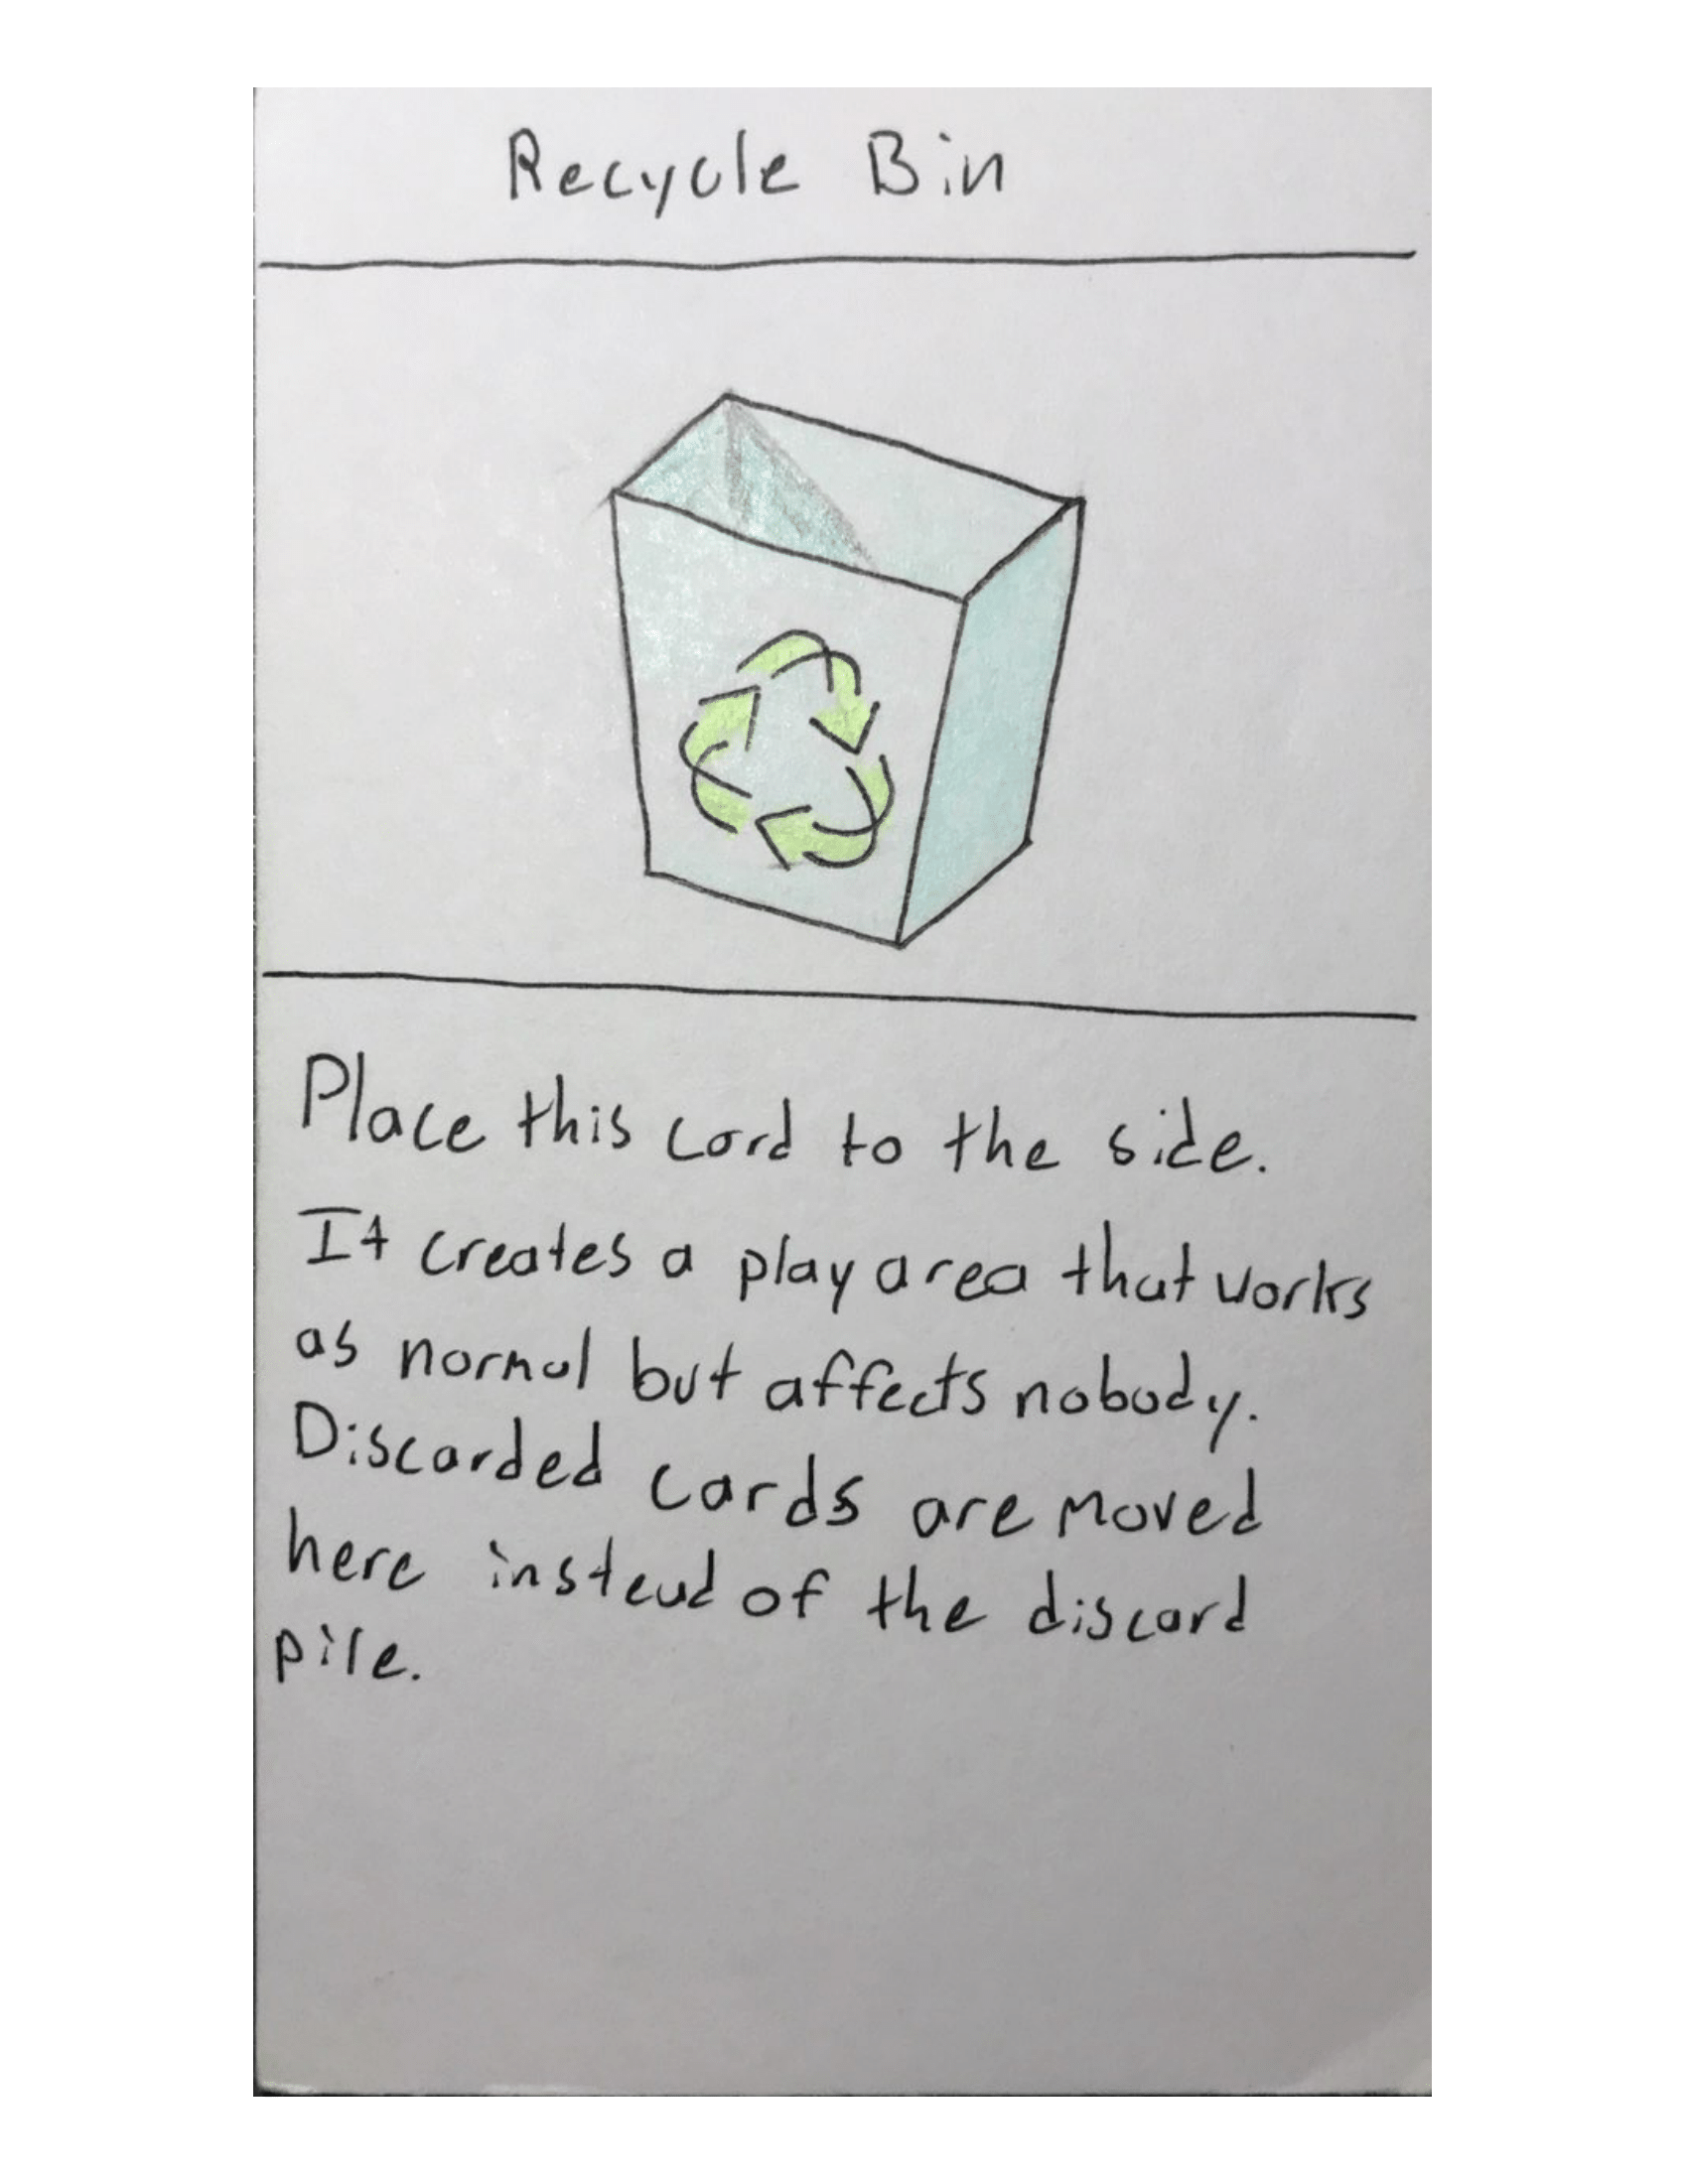 Recycle Bin
Place this card to the side.
It creates a play area that works
as normal but affects nobody.
Discarded cards are moved
here instead of the discard
pile.